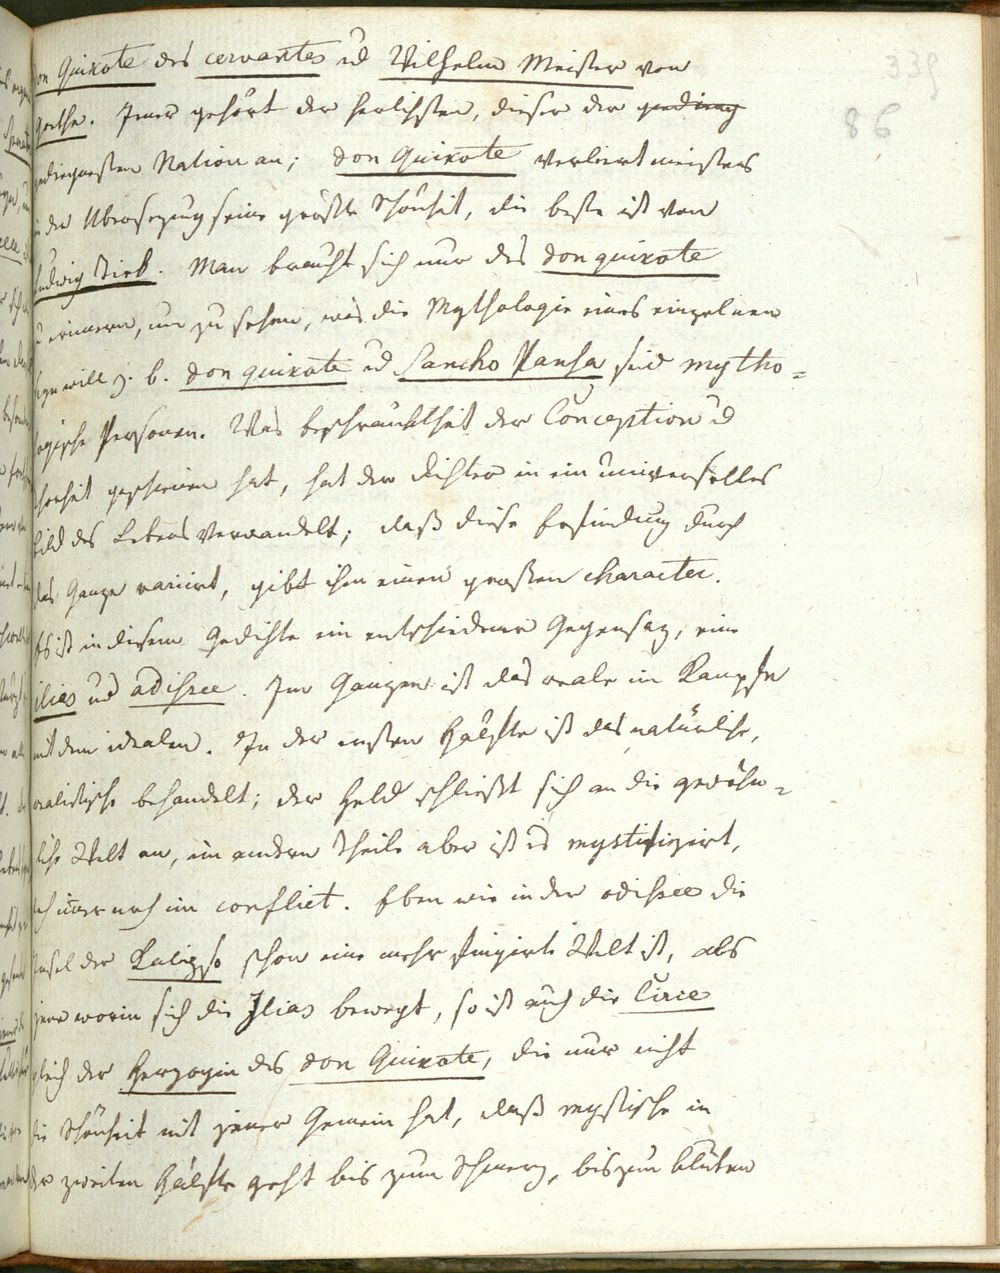 339
86
Don Quixote des cervantes ud Wilhelm Meister von
Goethe. Jener gehört der herlichsten, dieser der gedieng
gediegensten Nation an; don Quixote verliert meistens
in der Ubersezung seine größte Schönheit, die beste ist von
Ludwig Tiek. Man braucht sich nur des don quixote
zu erinnern, um zu sehen, was die Mythologie eines einzelnen
seyn will z. b. don quixote ud Sancho Pansa sind mytho=
logische Personen. Was beschränktheit der Conception ud
geschienen hat, hat der Dichter in ein universelles
bild des Lebens verwandelt; daß diese Erfindung durch
das Ganze variirt, gibt ihm einen großen character.
Es ist in diesem Gedichte ein entschiedener Gegensaz, eine
ilias und odißee. Im Ganzen ist das reale im Kampfe
mit dem idealen. In der ersten Hälfte ist das natürliche,
realistische behandelt; der Held schließt sich an die gewöhn=
liche Welt an, im andern Theile aber ist es mystifizirt,
noch immer noch im conflict. Eben wie in der odißee die
Insel der Kalipso schon eine mehr fingirte Welt ist, als
jene worin sich die Ilias bewegt, so ist auch die Circe
gleich der Herzogin des don Quixote, die nur nicht
die Schönheit mit jener Gemein hat, daß mystische in
der zweiten Hälfte geht bis zum Schmerz, bis zum bluten